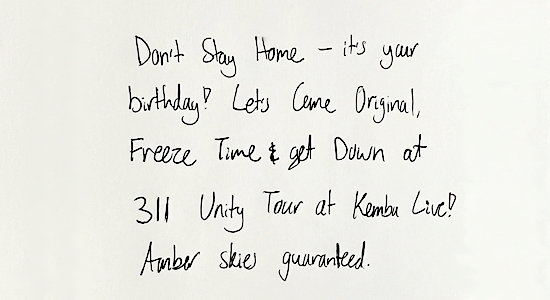 Don't Stay Home - it's your
birthday! Let's Come Original,
Freeze Time & get Down at
311 Unity Tour at Kemba Live!
Amber skies guaranteed.